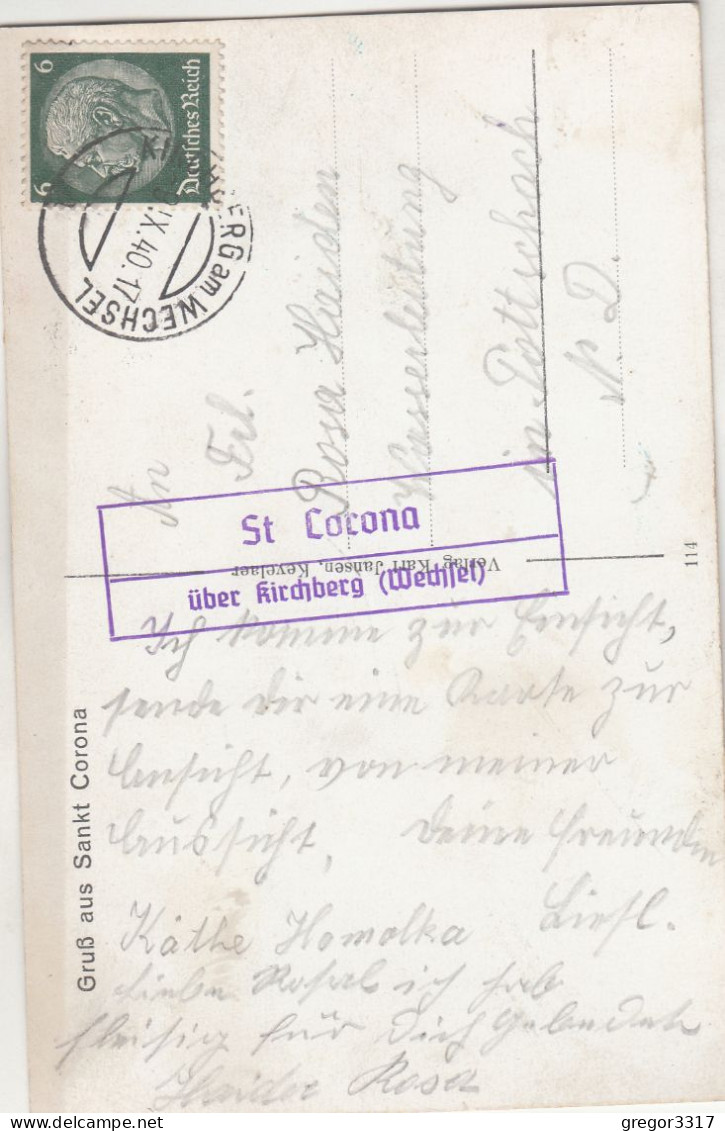 6
6
Deutsches Reich
KIRCHBERG am WECHSEL
IX.40.17
An
Frl.
Rosa Haiden
Wasserleitung
in Pottschach
N. D.
St Corona
über Kirchberg (Wechsel)
Verlag Karl Jansen, Kevelaer
114
Gruß aus Sankt Corona
Ich komme zur Einsicht,
sende dir eine Karte zur
Ansicht, von meiner
Aussicht, Deine Freundin
Liesl.
Käthe Homolka
Liebe Rosal ich hab
fleisig für Dich gebedet
Haider Rosa
delcampe.net
gregor3317